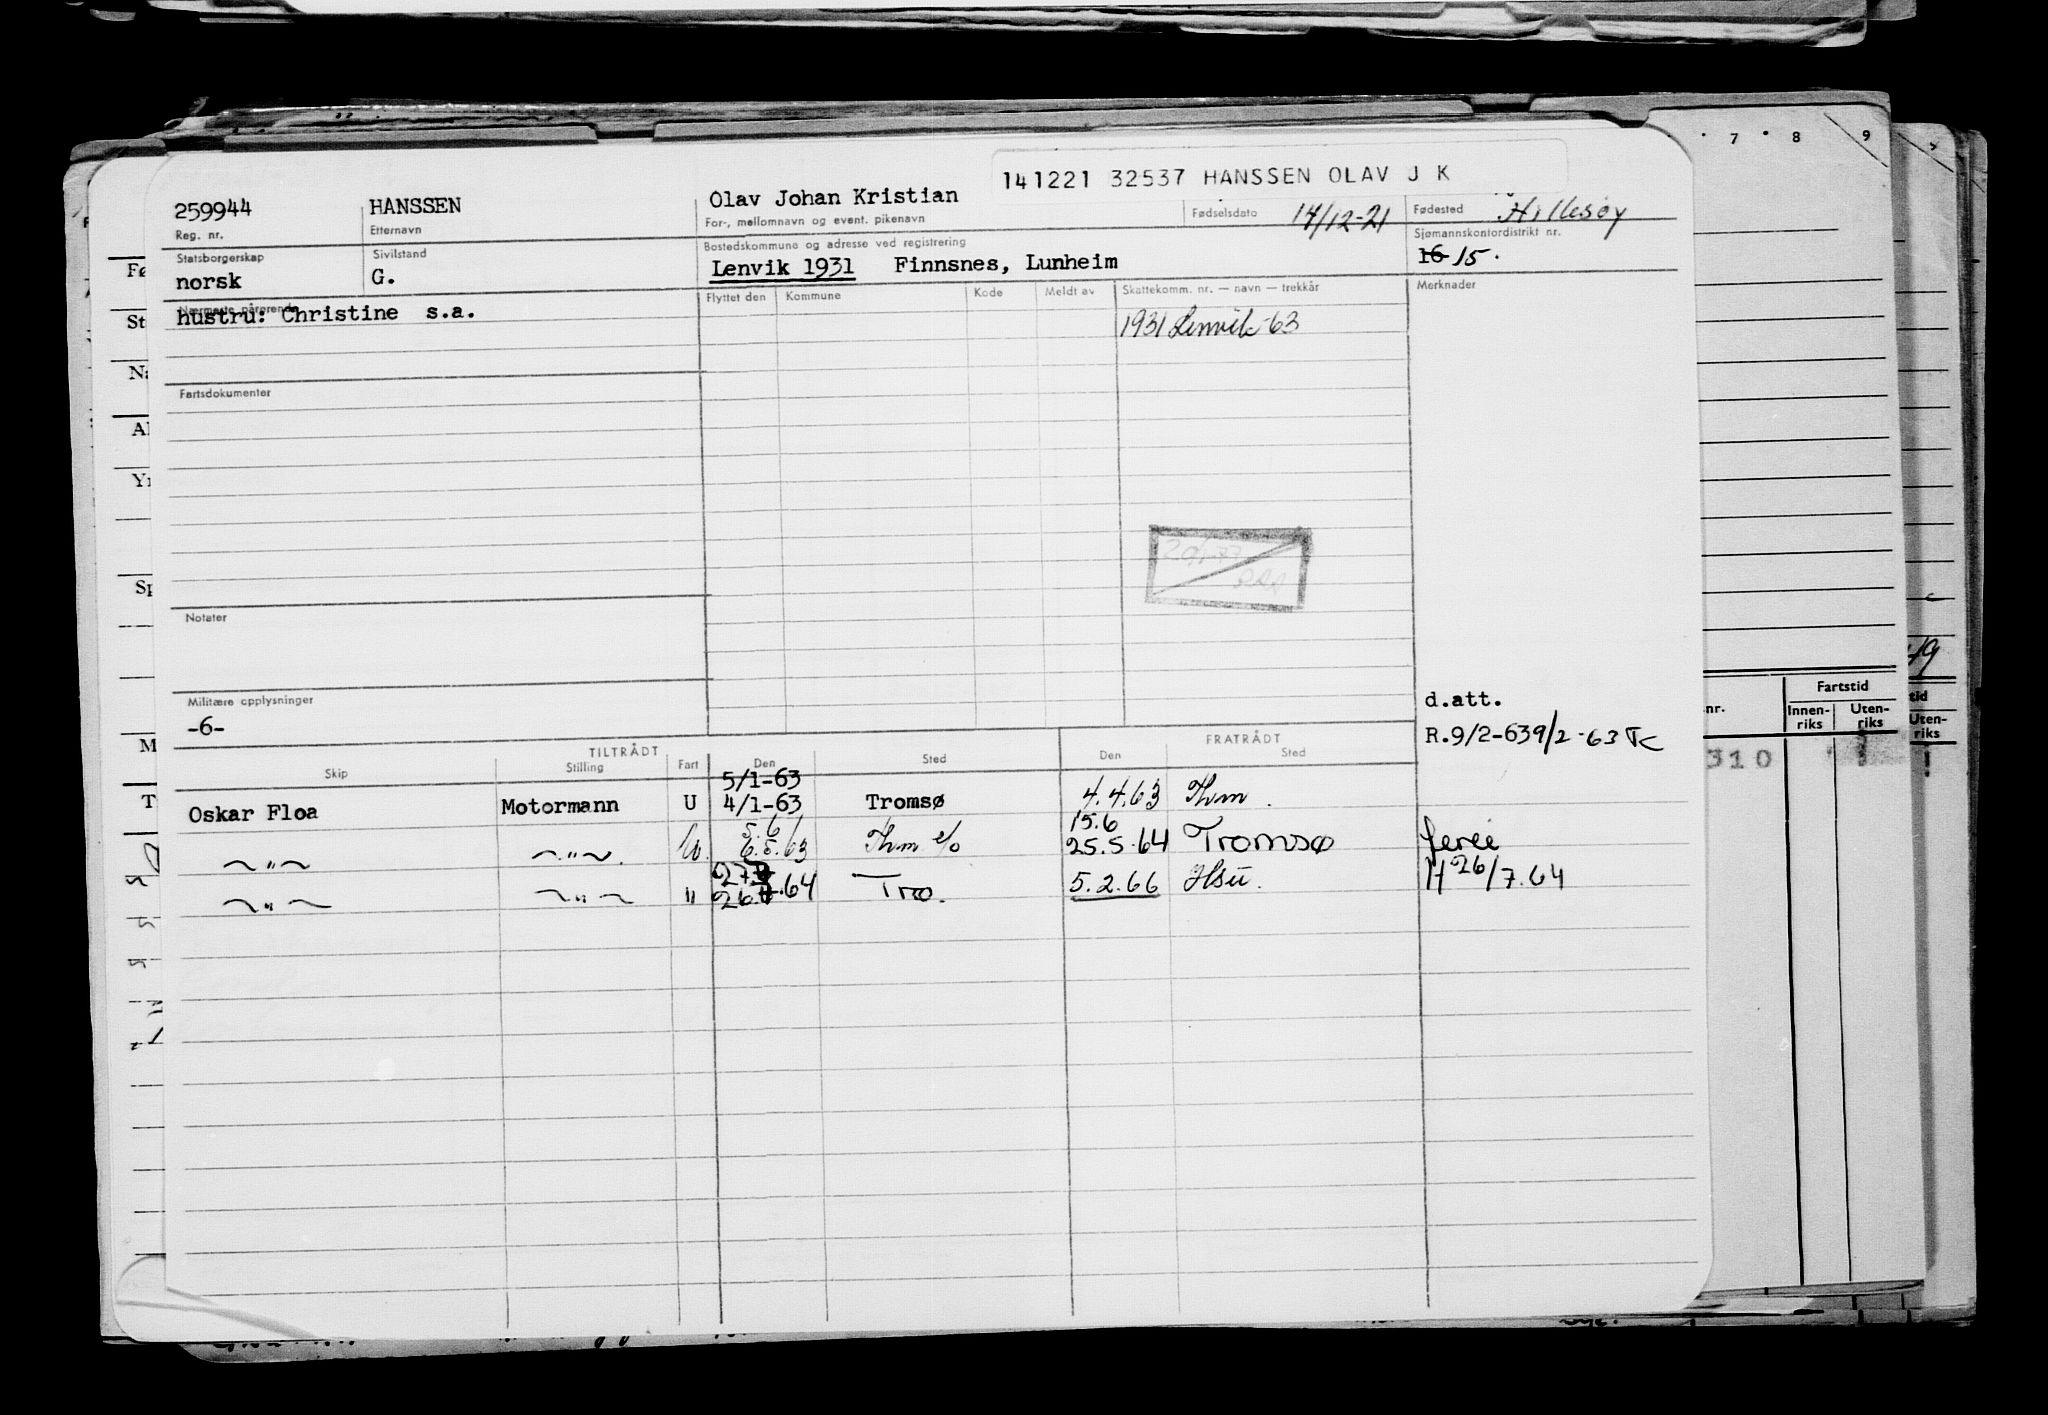 141221 32537 HANSSEN OLAV J K
259944 HANSSEN Olav Johan Kristian 14/12-21 Hillesøy
Reg. nr. Etternavn For-, mellomnavn og event. pikenavn Fødselsdato Fødested
Statsborgerskap Sivilstand Bostedskommune og adresse ved registrering Sjømannskontordistrikt nr.
norsk G. Lenvik 1931 Finnsnes, Lunheim 16 15.
Nærmeste pårørende Flyttet den Kommune Kode Meldt av Skattekomm. nr. — navn — trekkår Merknader
hustru: Christine s.a. 1931 Lenvik-63
Fartsdokumenter
Notater
Militære opplysninger
-6-
d.att.
R.9/2-63 9/2-63
TILTRÅDT FRATRÅDT
Skip Stilling Fart Den Sted Den Sted
5/1-63
Oskar Floa Motormann U 4/1-63 Tromsø 4.4.63 Thm.
5.6/ 15.6
~"~ ~"~. U. 6.5.63 Thm e/o 25.5.64 Tromsø ferie
27.
~"~ ~"~ " 26.7.64 Tro. 5.2.66 Hsu. H 26/7.64
7 8 9
Fø
St
Na
Al
Yr
Sp
M
T
Fartstid
nr. Innen-riks Uten-riks
tid
Uten-riks
310
49